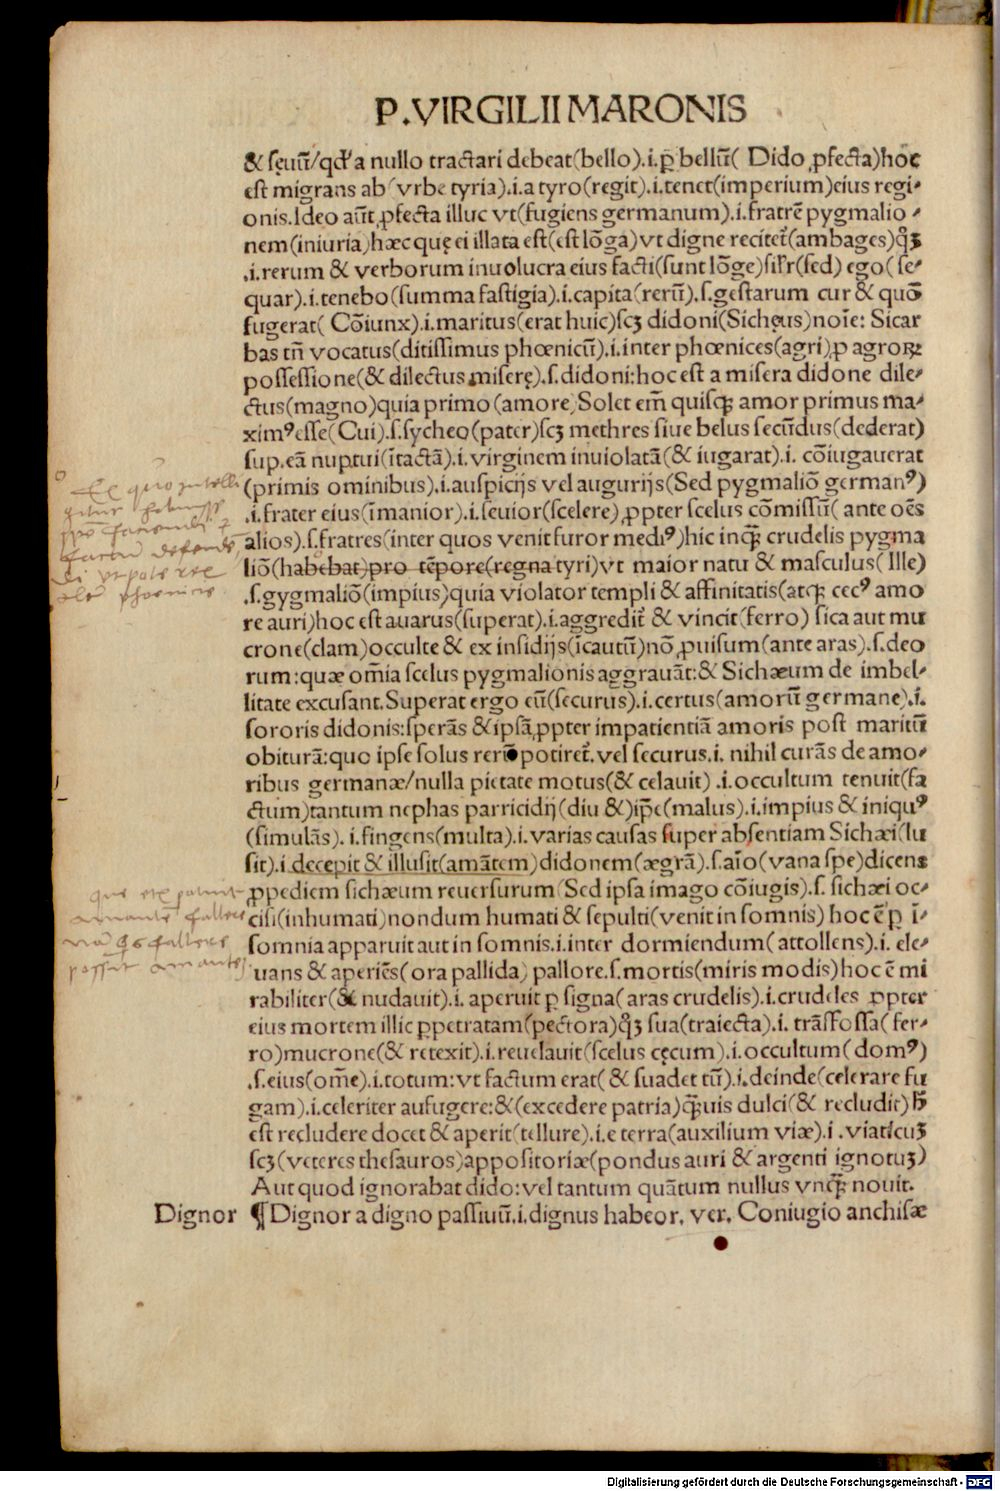 P. VIRGILII MARONIS
& sęuū/qđ a nullo tractari debeat(bello).i.ꝑ bellū( Dido ꝓfecta)hoc
est migrans ab (vrbe tyria).i.a tyro(regit).i.tenet(imperium)eius regi-
onis.Ideo aūt ꝓfecta illuc vt(fugiens germanum).i.fratrē pygmalio -
nem(iniuria)hæc quę ei illata est(est lōga)vt digne recitet̃(ambages)q̃ꝫ
.i.rerum & verborum inuolucra eius facti(sunt lōge)sil̃r(sed) ego( se-
quar).i.tenebo(summa fastigia).i.capita(rerū).s.gestarum cur & quō
fugerat( Cōiunx).i.maritus(erat huic)scꝫ didoni(Sichęus)noīe: Sicar
bas tñ vocatus(ditissimus phœnicū).i.inter phœnices(agri)ꝑ agroꝝ:
possessione(& dilectus miserę).s.didoni:hoc est a misera didone dile-
ctus(magno)quia primo(amore)Solet em̃ quisqꝫ amor primus ma-
ximꝰesse(Cui).s.sycheo(pater)scꝫ methres siue belus secūdus(dederat)
sup.eā nuptui(ītactā).i.virginem inuiolatā(& iugarat).i. cōiugauerat
(primis ominibus).i.auspicijs vel augurijs(Sed pygmaliō germanꝰ)
.i.frater eius(īmanior).i.seuior(scelere)ꝓpter scelus cōmissū( ante oēs
alios).s.fratres(inter quos venit furor mediꝰ)hic inqꝫ crudelis pygma
liō(habebat)pro tēpore(regna tyri)vt maior natu & masculus( Ille)
.s.gygmaliō(impius)quia violator templi & affinitatis(atqꝫ cecꝰ amo
re auri)hoc est auarus(superat).i.aggredit̃ & vincit(ferro) sica aut mu
crone(clam)occulte & ex insidijs(īcautū)nō ꝓuisum(ante aras).s.deo
rum:quæ om̃ia scelus pygmalionis aggrauāt:& Sichæum de imbel-
litate excusant.Superat ergo eū(securus).i.certus(amorū germane).i.
sororis didonis:sperās & ipsā ꝓpter impatientiā amoris post maritū
obiturā:quo ipse solus rerū potiret̃. vel securus.i. nihil curās de amo-
ribus germanæ/nulla pietate motus(& celauit) .i.occultum tenuit(fa
ctum)tantum nephas parricidij(diu &)ip̃e(malus).i.impius & iniquꝰ
(simulās). i.fingens(multa).i.varias causas super absentiam Sichæi(lu
sit).i.decepit & illusit(amātem)didonem(ægrā).s.aīo(vana spe)dicens
ꝓpediem sichæum reuersurum(Sed ipsa imago cōiugis).s. sichæi oc-
cisi(inhumati)nondum humati & sepulti(venit in somnis) hoc ē ꝑ ī-
somnia apparuit aut in somnis.i.inter dormiendum(attollens).i. ele-
uans & aperiēs(ora pallida) pallore.s.mortis(miris modis)hoc ē mi
rabiliter(& nudauit).i. aperuit ꝑ signa(aras crudelis).i.crudeles ꝓpter
eius mortem illic ꝑpetratam(pectora)q̃ꝫ sua(traiecta).i. trāsfossa(fer-
ro)mucrone(& retexit).i.reuelauit(scelus cęcum).i.occultum(domꝰ)
.s.eius(om̃e).i.totum:vt factum erat( & suadet tū).i.deinde(celerare fu
gam).i.celeriter aufugere:&(excedere patria)qꝫuis dulci(& recludit)ħ
est recludere docet & aperit(tellure).i.e terra(auxilium viæ).i .viaticuꝫ
scꝫ(veteres thesauros)appositoriæ(pondus auri & argenti ignotuꝫ)
Aut quod ignorabat dido:vel tantum quātum nullus vnqꝫ nouit.
Dignor ¶Dignor a digno passiuū.i.dignus habeor. ver. Coniugio anchisæ
amantē fallere
fallere
possit amantē
Digitalisierung gefördert durch die Deutsche Forschungsgemeinschaft - DFG